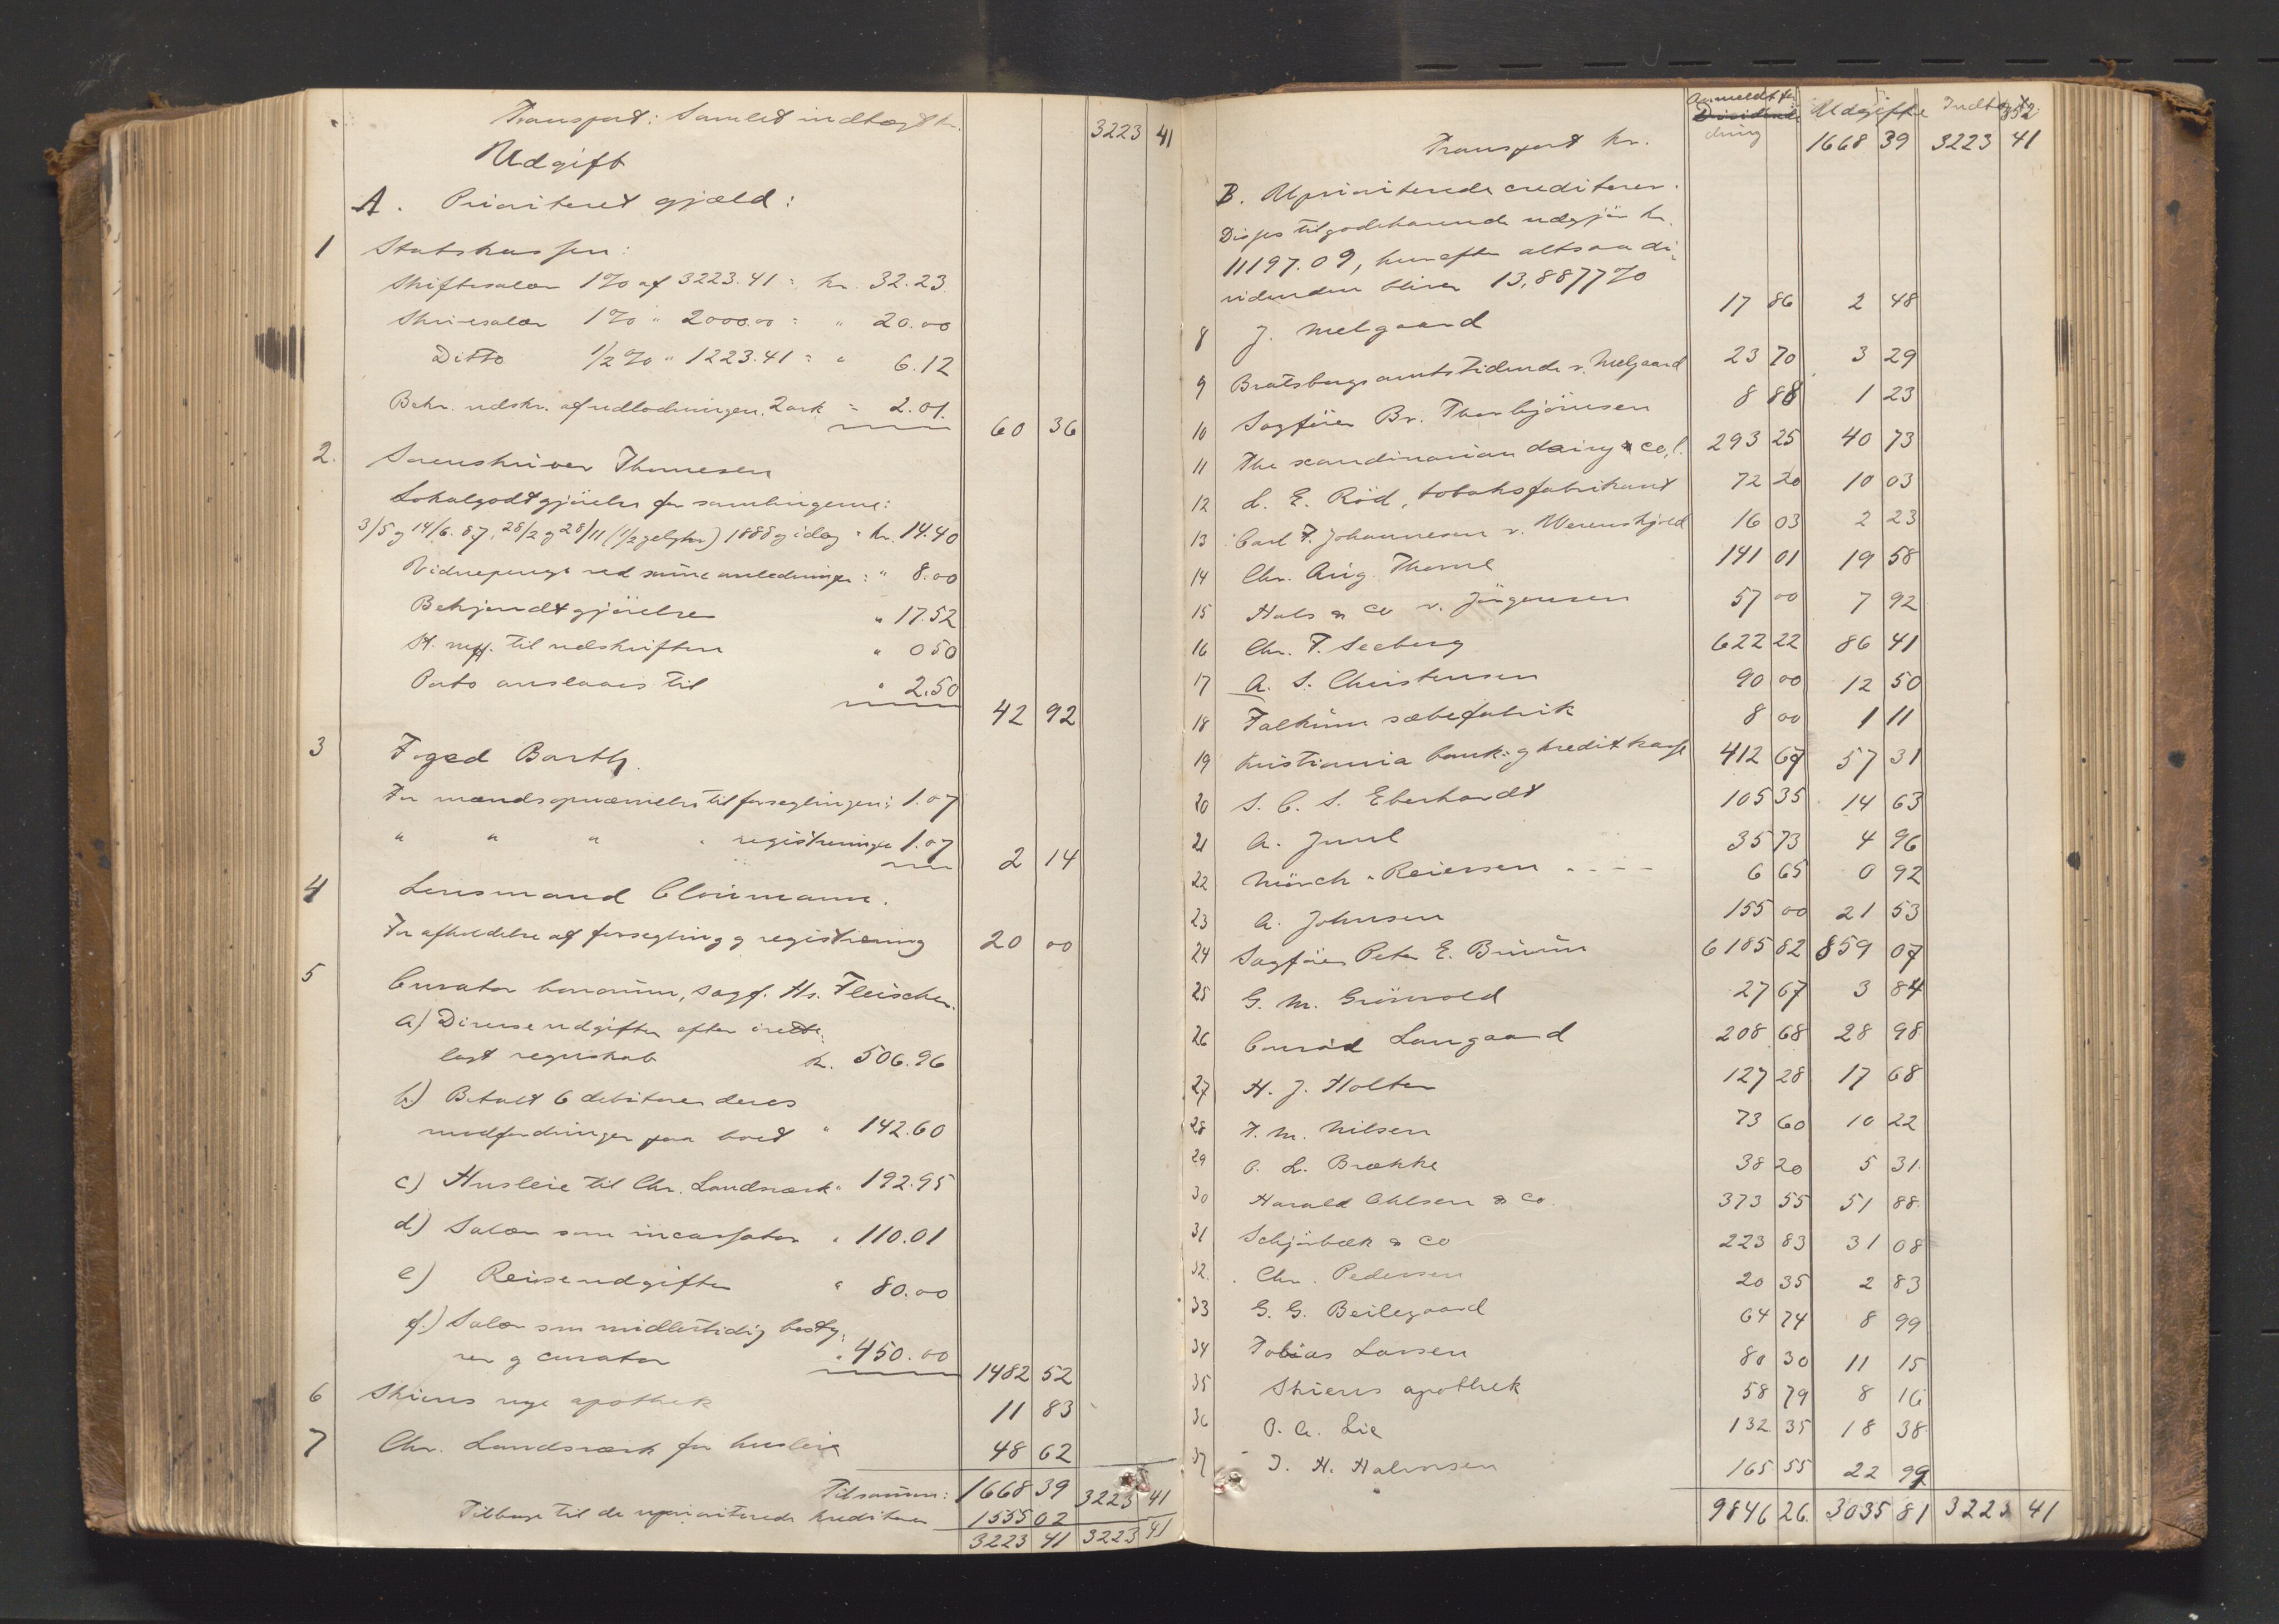 Transport: Samlet indtægt kr. 3223 41
Udgift
A. Prioriteret gjæld:
1 Statskassen:
Skiftesalær 1% af 3223.41 = kr. 32.23
Skrivesalær 1% " 2000.00 = " 20.00
Ditto 1/2% " 1223.41 = " 6.12
Bekr. udskr. af udlodningen, 2 ark = 2.01.
60 36
2. Sorenskriver Thomesen
Lokalgodtgjörelse for samlingerne:
3/5 og 14/6. 87, 28/2 og 28/11 (1/2 gelyhr) 1888 og idag = kr. 14.40
Vidnepenge ved samme anledninger: " 8.00
Bekjendtgjörelser " 17.52
St. mgf. til udskriften " 0 50
Porto anslaaes til " 2.50
42 92
3 Foged Barth.
For mændsopnævnelse til forseglingen: 1.07
" " " " registreringen 1.07
2 14
4 Lensmand Cloumann.
For afholdelse af forsegling og registrering 20 00
5 Curator bonorum, sagf. Hs. Fleischer.
a) Diverse udgifter efter irette-
lagt regnskab kr. 506.96
b) Betalt 6 debitorer deres
modfordringer paa boet " 142.60
c) Husleie til Chr. Landsværk " 192.95
d) Salær som incassator " 110.01
e) Reiseudgifter " 80.00
f.) Salær som midlertidig besty-
rer og curator " 450.00
1482 52
6 Skiens nye apothek 11 83
7 Chr. Landsværk for husleie 48 62
Tilsammen: 1668 39 3223 41
Tilbage til de uprioriterede kreditorer 1555 02
3223 41 3223 41
Anmeldt for Udgifte Indtægt 352.
Dividende
dring
Transport kr. 1668 39 3223 41
B. Uprioriterede creditorer.
Disses tilgodehavende udgjör kr.
11197.09, hvorefter altsaa di-
videnden bliver 13,8877%
8 J. Melgaard 17 86 2 48
9 Bratsbergs amtstidende v. Melgaard 23 70 3 29
10 Sagförer Br. Thorbjörnsen 8 88 1 23
11 The scandinavian dairy & co, l. 293 25 40 73
12 L. E. Röd, tobaksfabrikant 72 20 10 03
13 Carl F. Johannesen v. Werenskjold 16 03 2 23
14 Chr. Aug. Thorne 141 01 19 58
15 Hals & Co v. Jörgensen 57 00 7 92
16 Chr. F. Seeberg 622 22 86 41
17 A. S. Christensen 90 00 12 50
18 Falkum sæbefabrik 8 00 1 11
19 Kristiania bank- og kreditkasse 412 67 57 31
20 S. C. S. Eberhardt 105 35 14 63
21 A. Juul 35 73 4 96
22 Münch & Reiersen 6 65 0 92
23 A. Johnsen 155 00 21 53
24 Sagförer Peter E. Bruun 6185 82 859 07
25 G. M. Grönvold 27 67 3 84
26 Conrad Langaard 208 68 28 98
27 H. J. Holter 127 28 17 68
28 F. M. Nilsen 73 60 10 22
29 O. L. Brække 38 20 5 31
30 Harald Ohlsen & Co. 373 55 51 88
31 Schjörbæk & Co 223 83 31 08
32. Chr. Pedersen 20 35 2 83
33 G. G. Beilegaard 64 74 8 99
34 Tobias Larsen 80 30 11 15
35 Skiens apothek 58 79 8 16
36 O. A. Lie 132 35 18 38
37 J. H. Halvorsen 165 55 22 99
9846 26. 3035 81 3223 41